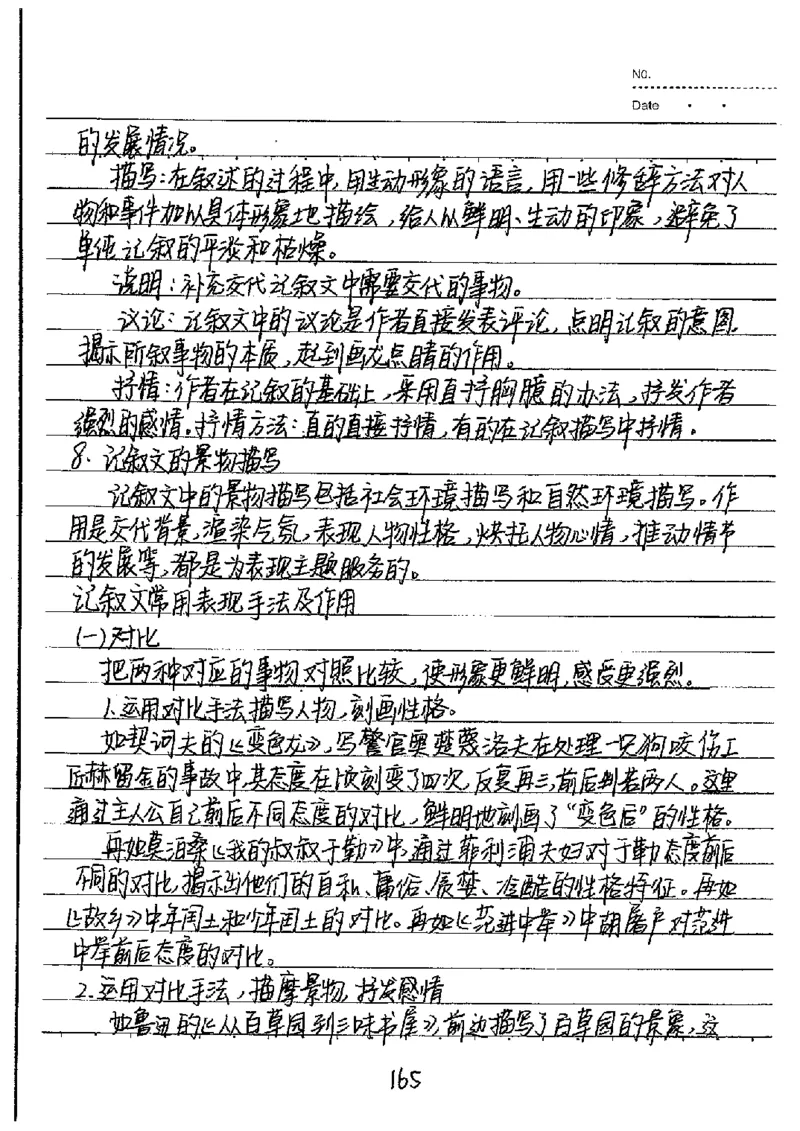 No.
Date
的发展情况。
描写：在叙述的过程中，用生动形象的语言，用一些修辞方法对人
物和事件加以具体形象地描绘，给人以鲜明、生动的印象，避免了
单纯记叙的平淡和枯燥。
说明：补充交代记叙文中需要交代的事物。
议论：记叙文中的议论是作者直接发表评论，点明记叙的意图，
揭示所叙事物的本质，起到画龙点睛的作用。
抒情：作者在记叙的基础上，采用直抒胸臆的办法，抒发作者
强烈的感情。抒情方法：直的直接抒情，有的在记叙描写中抒情。
8. 记叙文的景物描写
记叙文中的景物描写包括社会环境描写和自然环境描写。作
用是交代背景，渲染气氛，表现人物性格，烘托人物心情，推动情节
的发展等，都是为表现主题服务的。
记叙文常用表现手法及作用
(一)对比
把两种对应的事物对照比较，使形象更鲜明，感受更强烈。
1.运用对比手法描写人物，刻画性格。
如契诃夫的《变色龙》，写警官奥楚蔑洛夫在处理一只狗咬伤工
匠赫留金的事故中，其态度在顷刻变了四次，反复再三，前后判若两人。这里
通过主人公自己前后不同态度的对比，鲜明地刻画了“变色后”的性格。
再如莫泊桑《我的叔叔于勒》中，通过菲利浦夫妇对于勒态度前后
不同的对比，揭示出他们的自私、庸俗、虚荣、冷酷的性格特征。再如
《故乡》中年闰土和少年闰土的对比。再如《范进中举》中胡屠户对范进
中举前后态度的对比。
2.运用对比手法，描摩景物，抒发感情
如鲁迅的《从百草园到三味书屋》，前边描写了百草园的景象，这
165